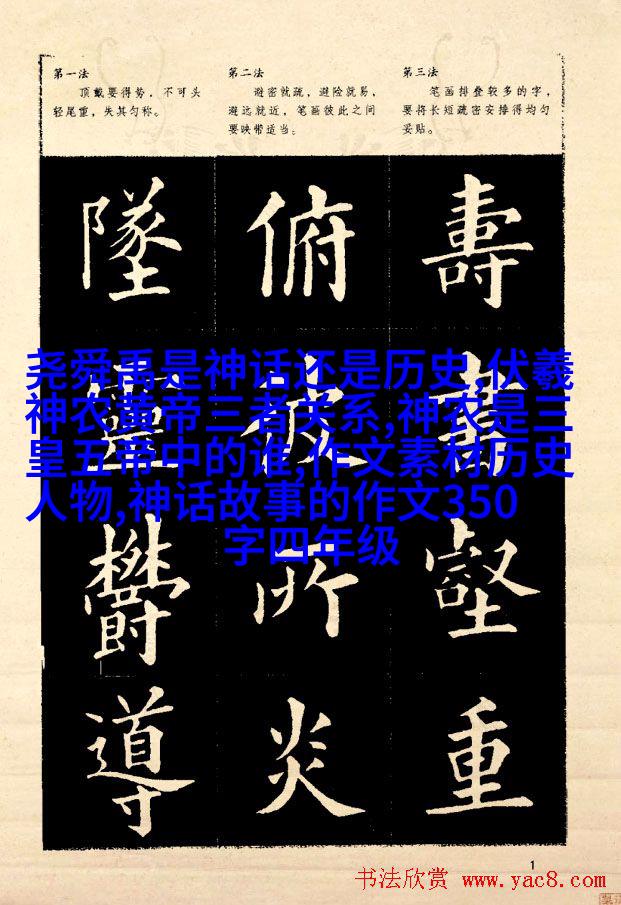 第一法
顶戴要得势，不可头
轻尾重，失其匀称。
第二法
避密就疏，避险就易，
避远就近，笔画彼此之间
要映带适当。
第三法
笔画排叠较多的字，
要将长短疏密安排得均匀
妥贴。
墜 俯 壽
尧舜禹是神话还是历史,伏羲
神农黄帝三者关系,神农是三
皇五帝中的谁,作文素材历史
人物,神话故事的作文350
字四年级
欝 所 壑
導 炎 重
1
书法欣赏 www.yac8.com